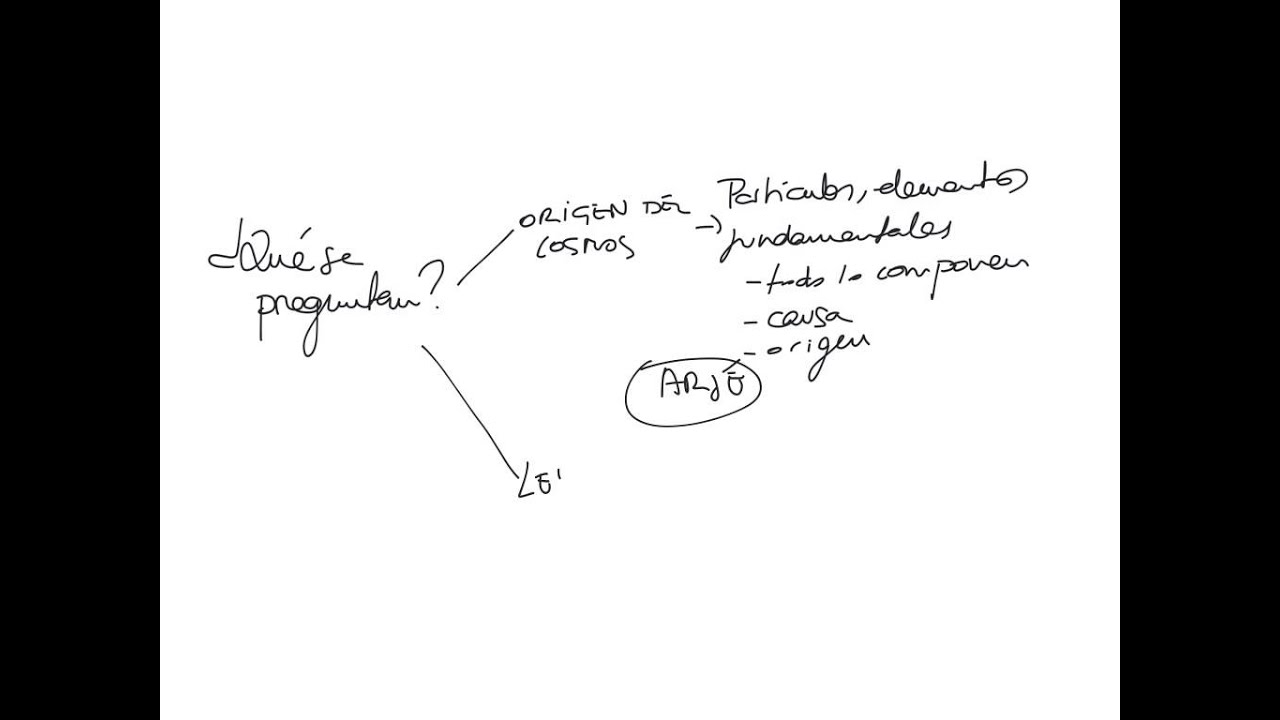 ¿Qué se
preguntan?
ORIGEN DEL
COSMOS
→ Partículas, elementos
fundamentales
- todo lo componen
- causa
- origen
ARJÉ
LE